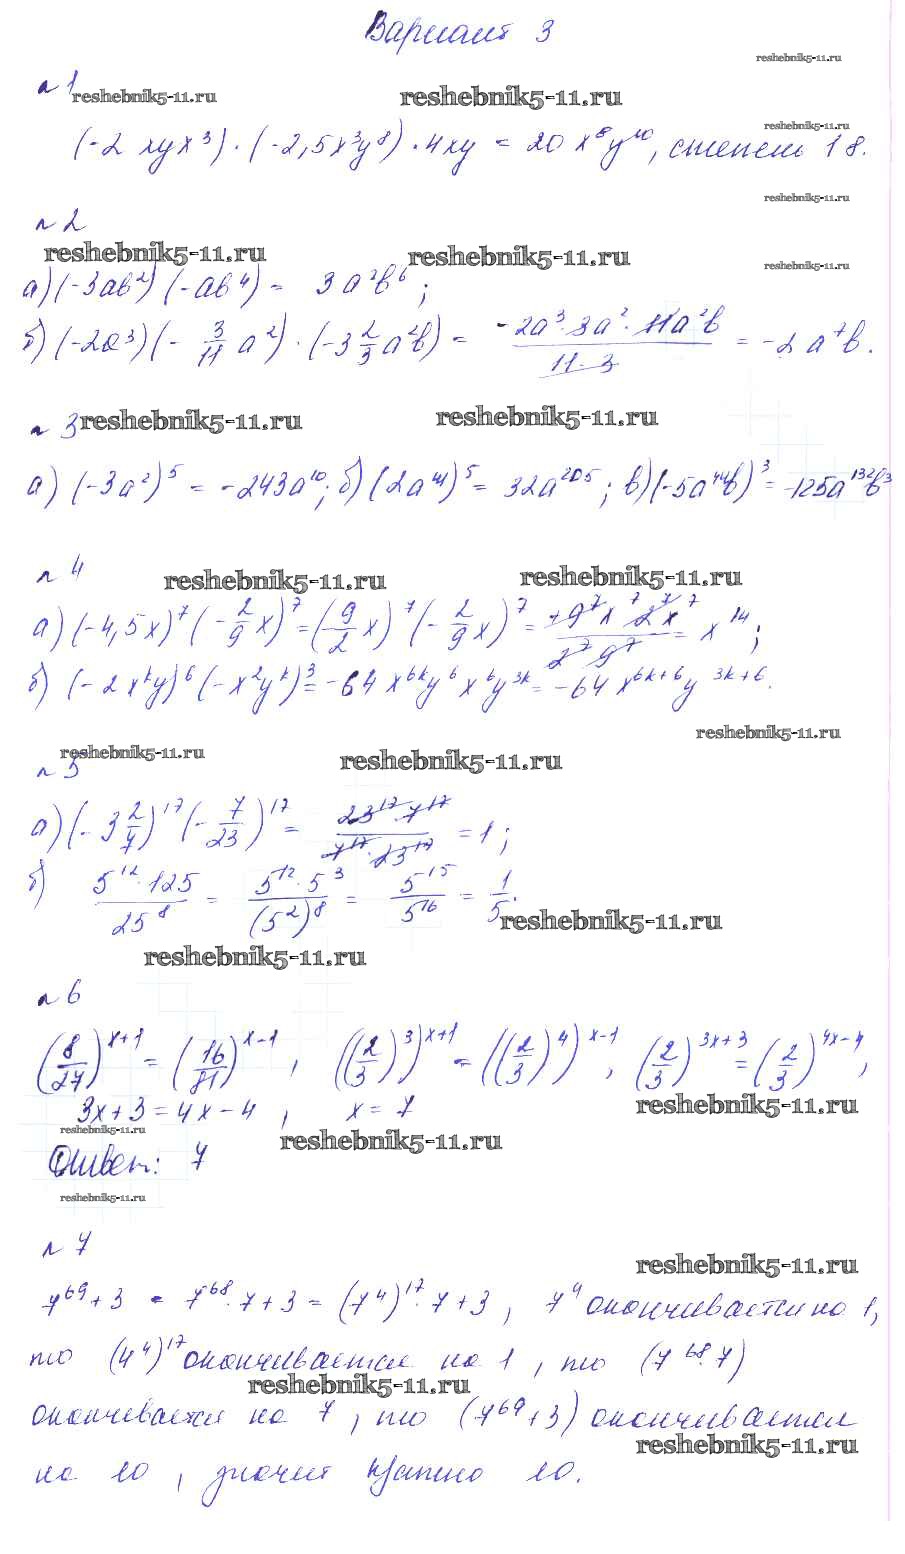 Вариант 3
№1
reshebnik5-11.ru reshebnik5-11.ru reshebnik5-11.ru
(-2 xyx³) · (-2,5x³y⁸) · 4xy = 20 x⁸y¹⁰, степень 18.
reshebnik5-11.ru
reshebnik5-11.ru
№2
reshebnik5-11.ru reshebnik5-11.ru reshebnik5-11.ru
а) (-3ab²) (-ab⁴) = 3a²b⁶;
б) (-2a³) (- 3/11 a²) · (-3 2/3 a²b) = -2a³·3a²·11a²b / 11·3 = -2a⁷b.
№3 reshebnik5-11.ru reshebnik5-11.ru
а) (-3a²)⁵ = -243a¹⁰; б) (2a⁴¹)⁵ = 32a²⁰⁵; в) (-5a⁴⁴b)³ = -125a¹³²b³
№4
reshebnik5-11.ru reshebnik5-11.ru
а) (-4,5x)⁷ (- 2/9 x)⁷ = (9/2 x)⁷ (- 2/9 x)⁷ = +9⁷x⁷2⁷x⁷ / 2⁷9⁷ = x¹⁴;
б) (-2xᵏy)⁶ (-x²yᵏ)³ = -64x⁶ᵏy⁶x⁶y³ᵏ = -64x⁶ᵏ⁺⁶y³ᵏ⁺⁶.
reshebnik5-11.ru reshebnik5-11.ru reshebnik5-11.ru
№5
а) (-3 2/7)¹⁷ (- 7/23)¹⁷ = 23¹⁷·7¹⁷ / 7¹⁷·23¹⁷ = 1;
б) 5¹²·125 / 25⁸ = 5¹²·5³ / (5²)⁸ = 5¹⁵ / 5¹⁶ = 1/5.
reshebnik5-11.ru
reshebnik5-11.ru
№6
(8/27)ˣ⁺¹ = (16/81)ˣ⁻¹, ((2/3)³)ˣ⁺¹ = ((2/3)⁴)ˣ⁻¹, (2/3)³ˣ⁺³ = (2/3)⁴ˣ⁻⁴,
reshebnik5-11.ru
3x+3 = 4x-4, x = 7
reshebnik5-11.ru reshebnik5-11.ru
Ответ: 7
reshebnik5-11.ru
№7
reshebnik5-11.ru
7⁶⁹+3 = 7⁶⁸·7+3 = (7⁴)¹⁷·7+3, 7⁴ оканчивается на 1,
то (7⁴)¹⁷ оканчивается на 1, то (7⁶⁸·7)
reshebnik5-11.ru
оканчивается на 7, то (7⁶⁹+3) оканчивается
reshebnik5-11.ru
на 10, значит кратно 10.